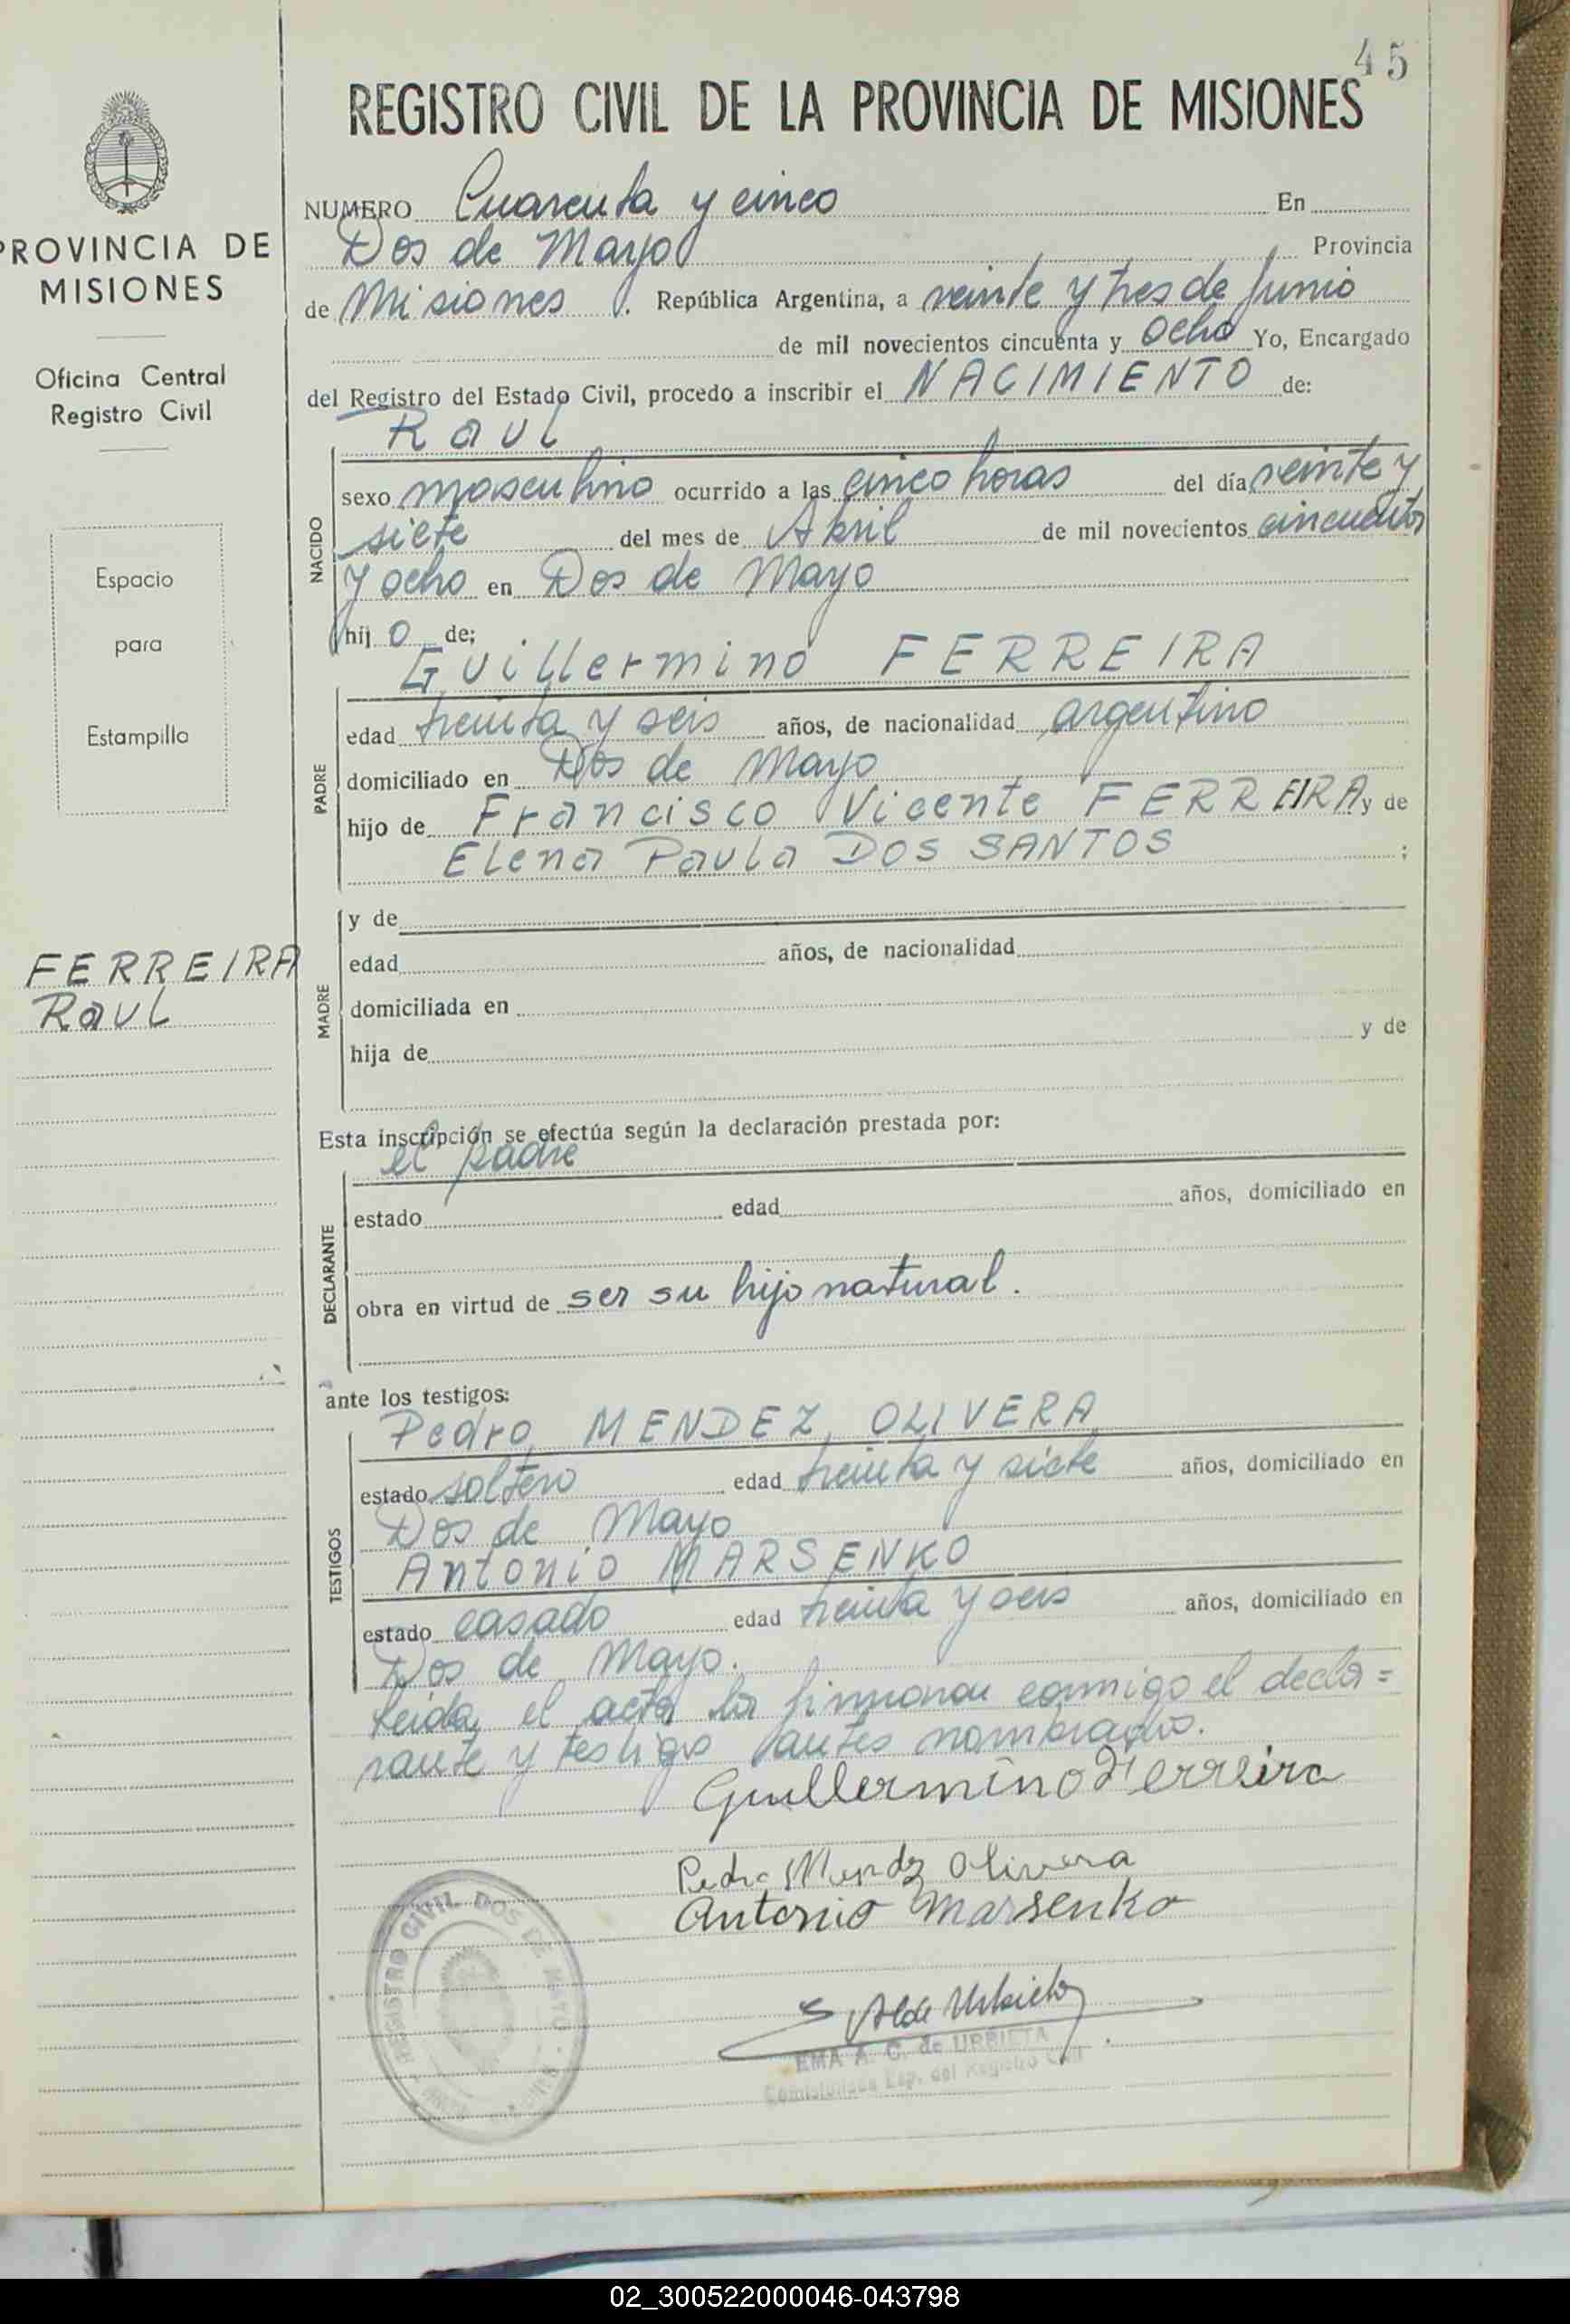 45
REGISTRO CIVIL DE LA PROVINCIA DE MISIONES
PROVINCIA DE
MISIONES
Oficina Central
Registro Civil
Espacio
para
Estampilla
FERREIRA
Raul
NUMERO Cuarenta y cinco En
Dos de Mayo Provincia
de Misiones. República Argentina, a veinte y tres de Junio
de mil novecientos cincuenta y ocho Yo, Encargado
del Registro del Estado Civil, procedo a inscribir el NACIMIENTO de:
Raul
NACIDO
sexo masculino ocurrido a las cinco horas del día veinte y
siete del mes de Abril de mil novecientos cincuenta
y ocho en Dos de Mayo
hij o de;
Guillermino FERREIRA
PADRE
edad treinta y seis años, de nacionalidad argentino
domiciliado en Dos de Mayo
hijo de Francisco Vicente FERREIRA y de
Elena Paula DOS SANTOS ;
MADRE
y de
edad años, de nacionalidad
domiciliada en
hija de y de
Esta inscripción se efectúa según la declaración prestada por:
el padre
DECLARANTE
estado edad años, domiciliado en
obra en virtud de ser su hijo natural.
ante los testigos:
Pedro MENDEZ OLIVERA
TESTIGOS
estado soltero edad treinta y siete años, domiciliado en
Dos de Mayo
Antonio MARSENKO
estado casado edad treinta y seis años, domiciliado en
Dos de Mayo.
Leida el acta la firmaron conmigo el decla=
rante y testigos antes nombrados.
Guillermino Ferreira
Pedro Mendez Olivera
Antonio Marsenko
REGISTRO CIVIL DOS DE MAYO
EMA A. C. de URBIETA
del Registro Civil
02_300522000046-043798